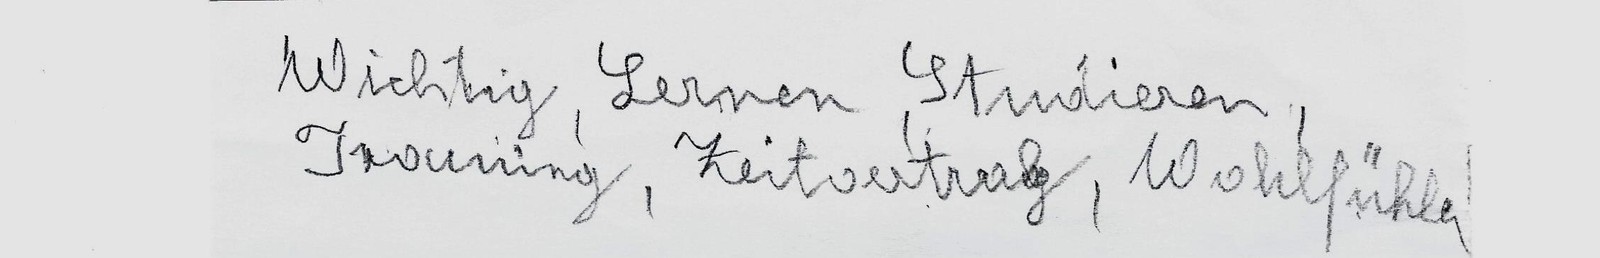 Wichtig, Lernen, Studieren,
Training, Zeitvertrag, Wohlfühlen